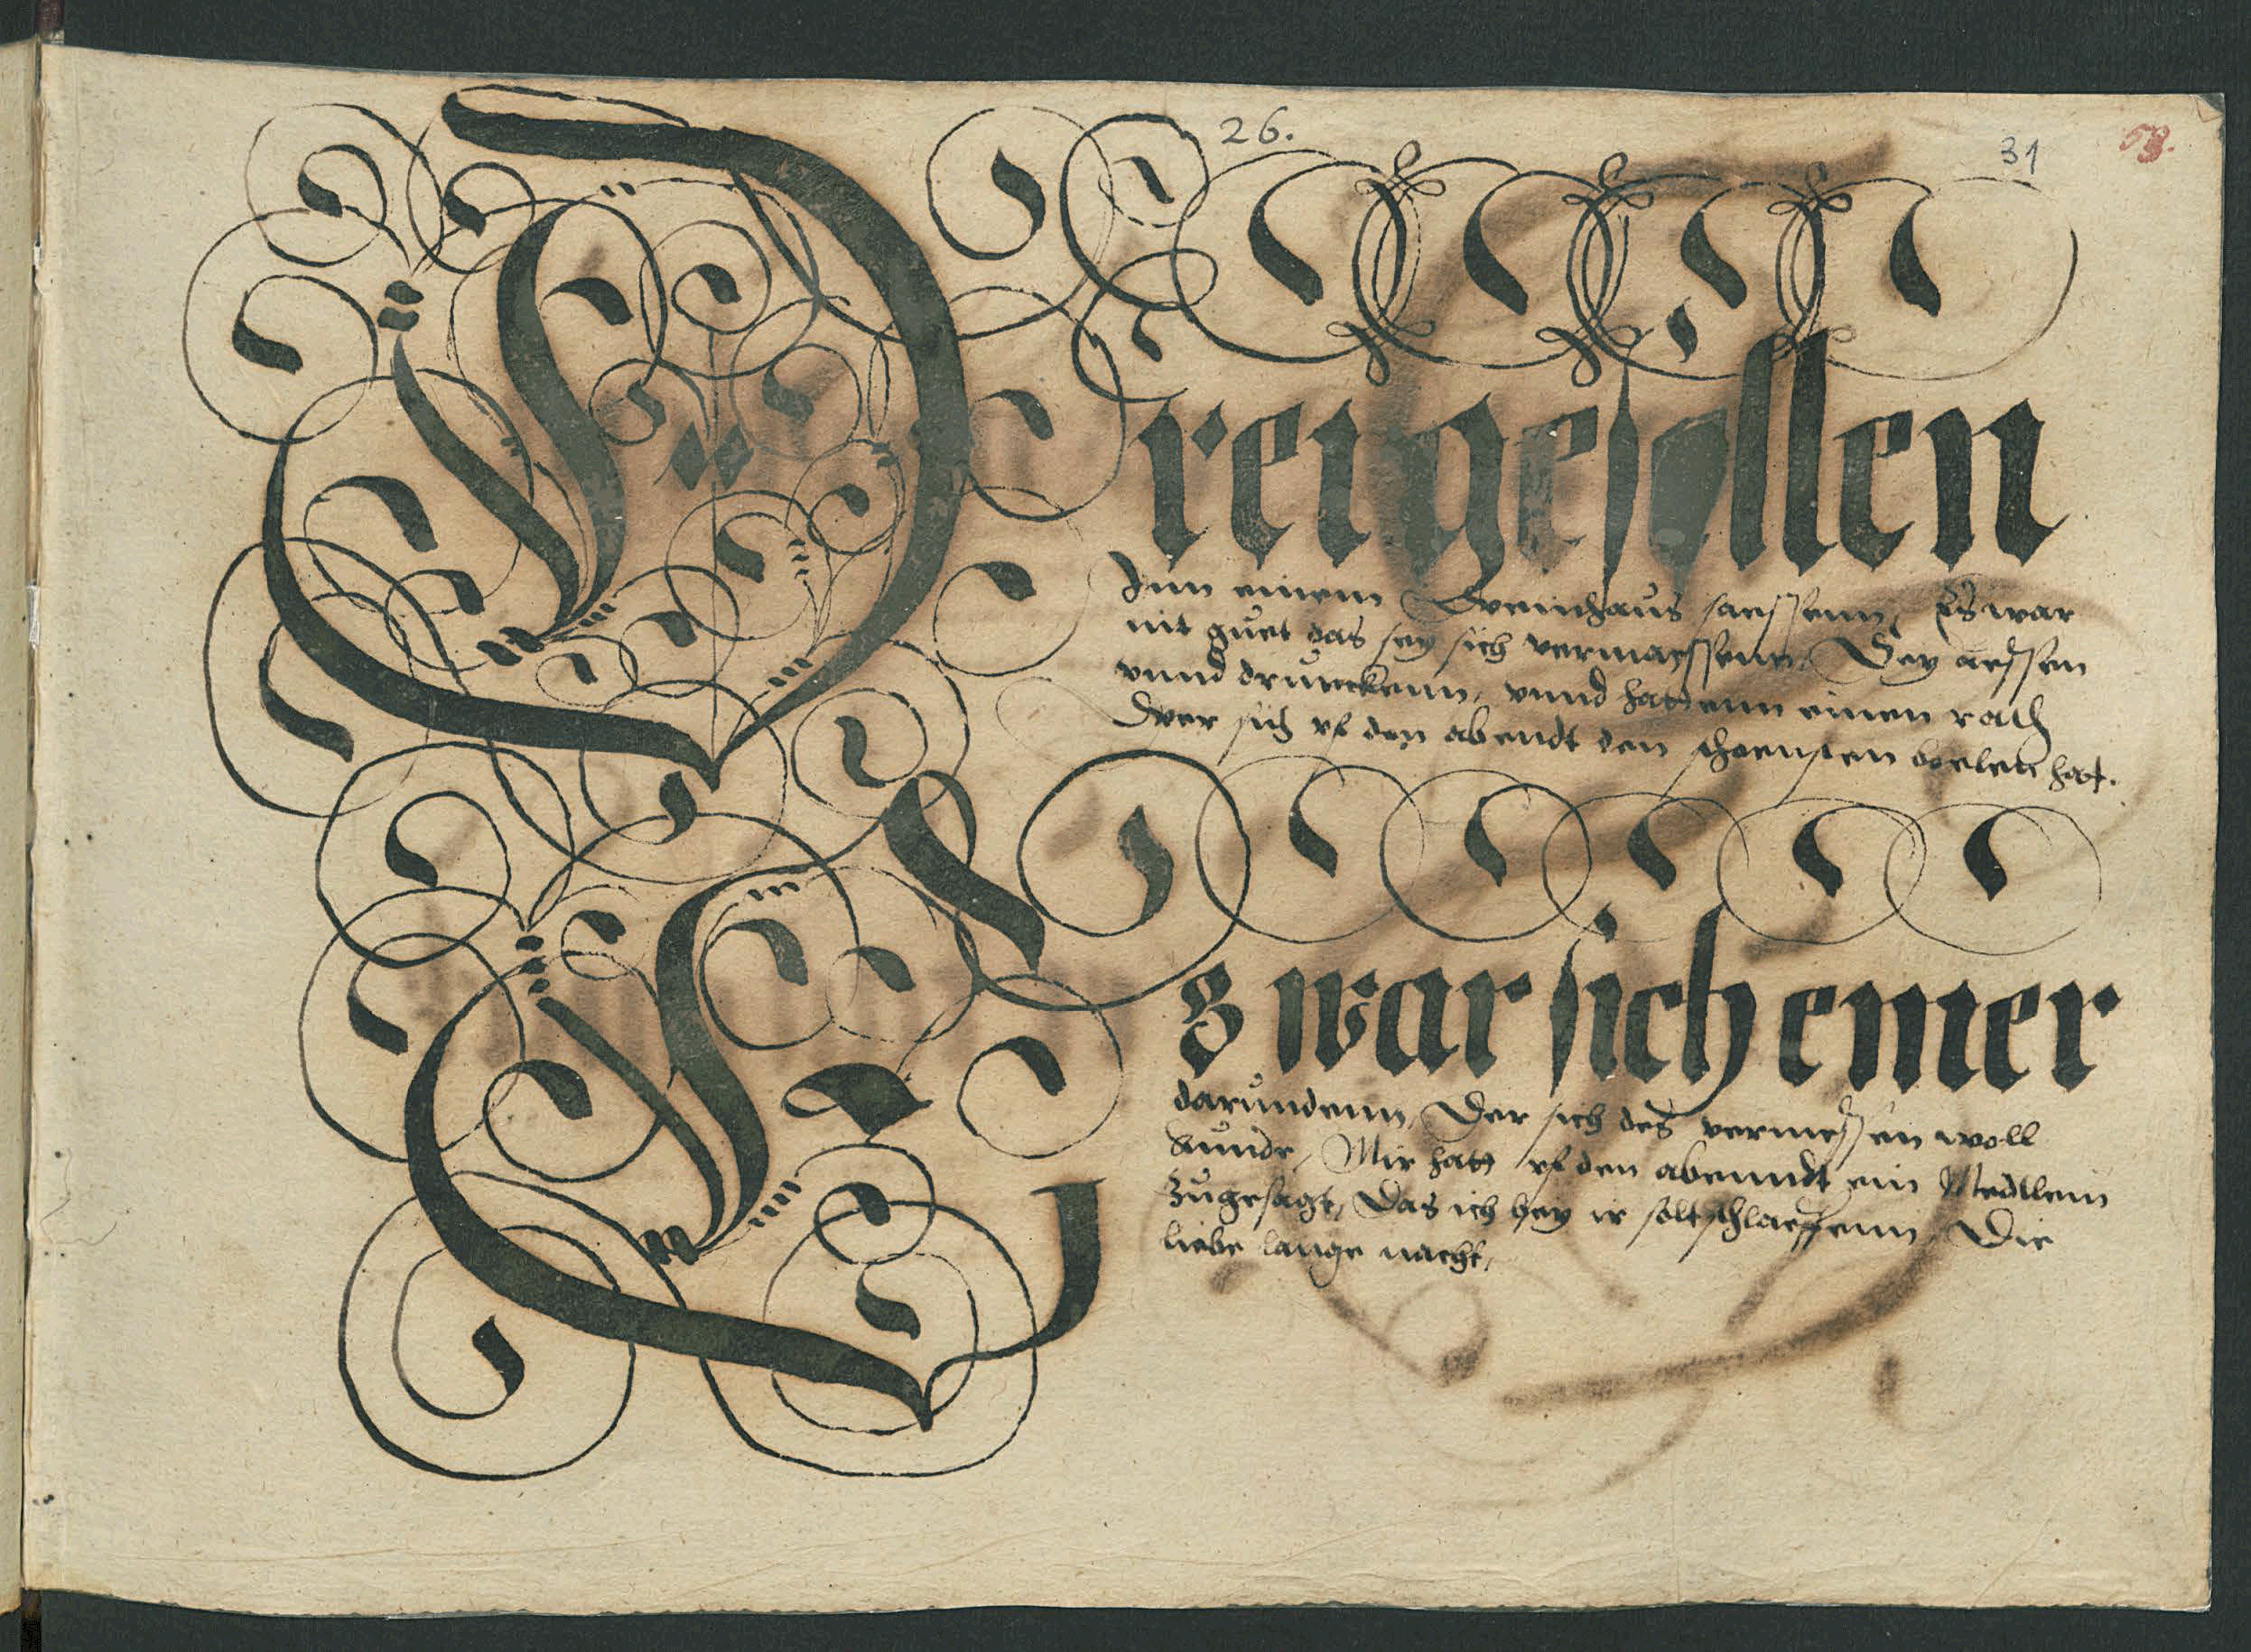 26.
31
53.
Drei gesollen
Jnn einem Weinhaus saessenn, Es war
nit guet das sey sich vermaessenn, Sey aessen
vnnd drunckenn, vnnd hattenn einen rath
Wer sich vf den abendt den schoensten boelen hat.
Es war sich einer
darundenn, Der sich des vermessen woll
kunde, Mir hatt vf den abenndt ein Medllein
zugesagt, Das ich bey ir solt schlaeffenn, Die
liebe lange nacht,